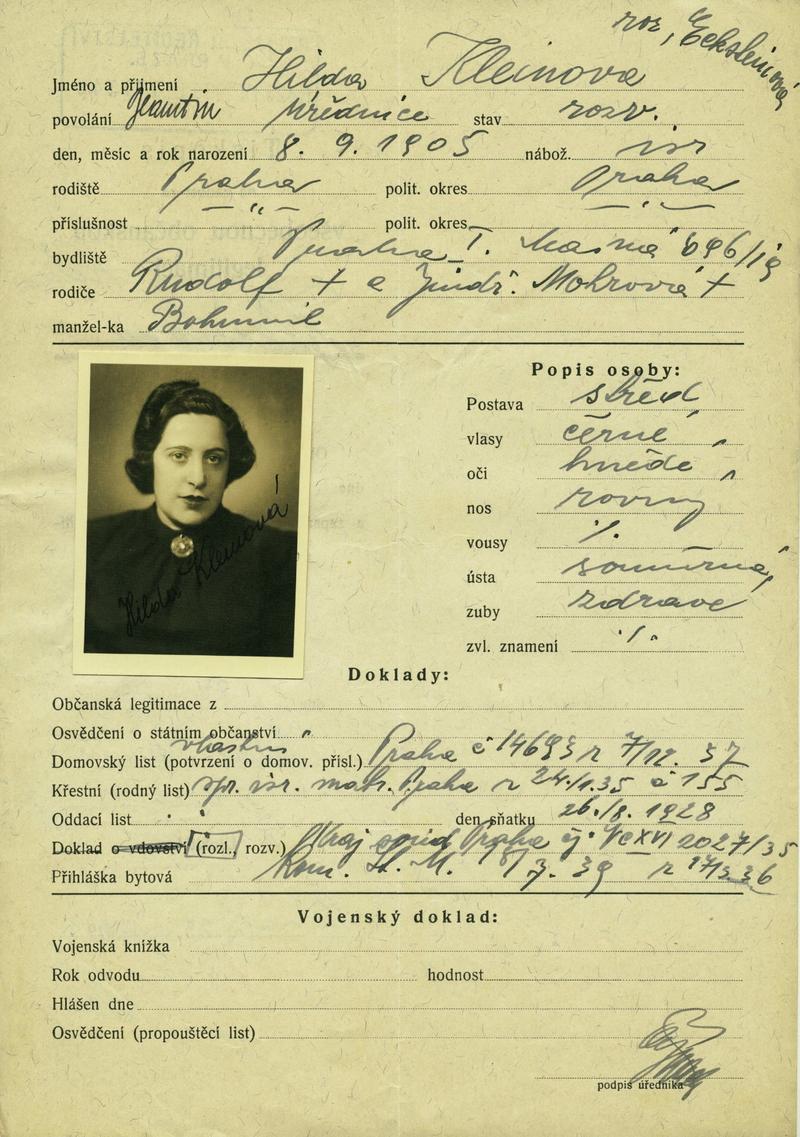 roz. Ecksteinová
Jméno a příjmení Hilda Kleinova
povolání úřednice stav rozv.
den, měsíc a rok narození 8. 9. 1905 nábož. isr
rodiště Praha polit. okres Praha
příslušnost — " — polit. okres — " —
bydliště Praha I. Masná 696/19
rodiče Rudolf + a Jindř. Mohrová +
manžel-ka Bohumil
Popis osoby:
Postava střed
vlasy černé
oči hnědé
nos rovný
vousy ./.
ústa souměrná
zuby zdravé
zvl. znamení ./.
Hilda Kleinová
Doklady:
Občanská legitimace z
Osvědčení o státním občanství "
vlastni
Domovský list (potvrzení o domov. přísl.) Praha č 14693 z 7/12. 37
Křestní (rodný list) isr. matr. Praha z 24./1.35 č 155
Oddací list den sňatku 26./8. 1928
Doklad o vdovství (rozl., rozv.) Kraj soud Praha čj. 2027/35
Přihláška bytová
Vojenský doklad:
Vojenská knížka
Rok odvodu hodnost
Hlášen dne
Osvědčení (propouštěcí list)
podpis úředníka